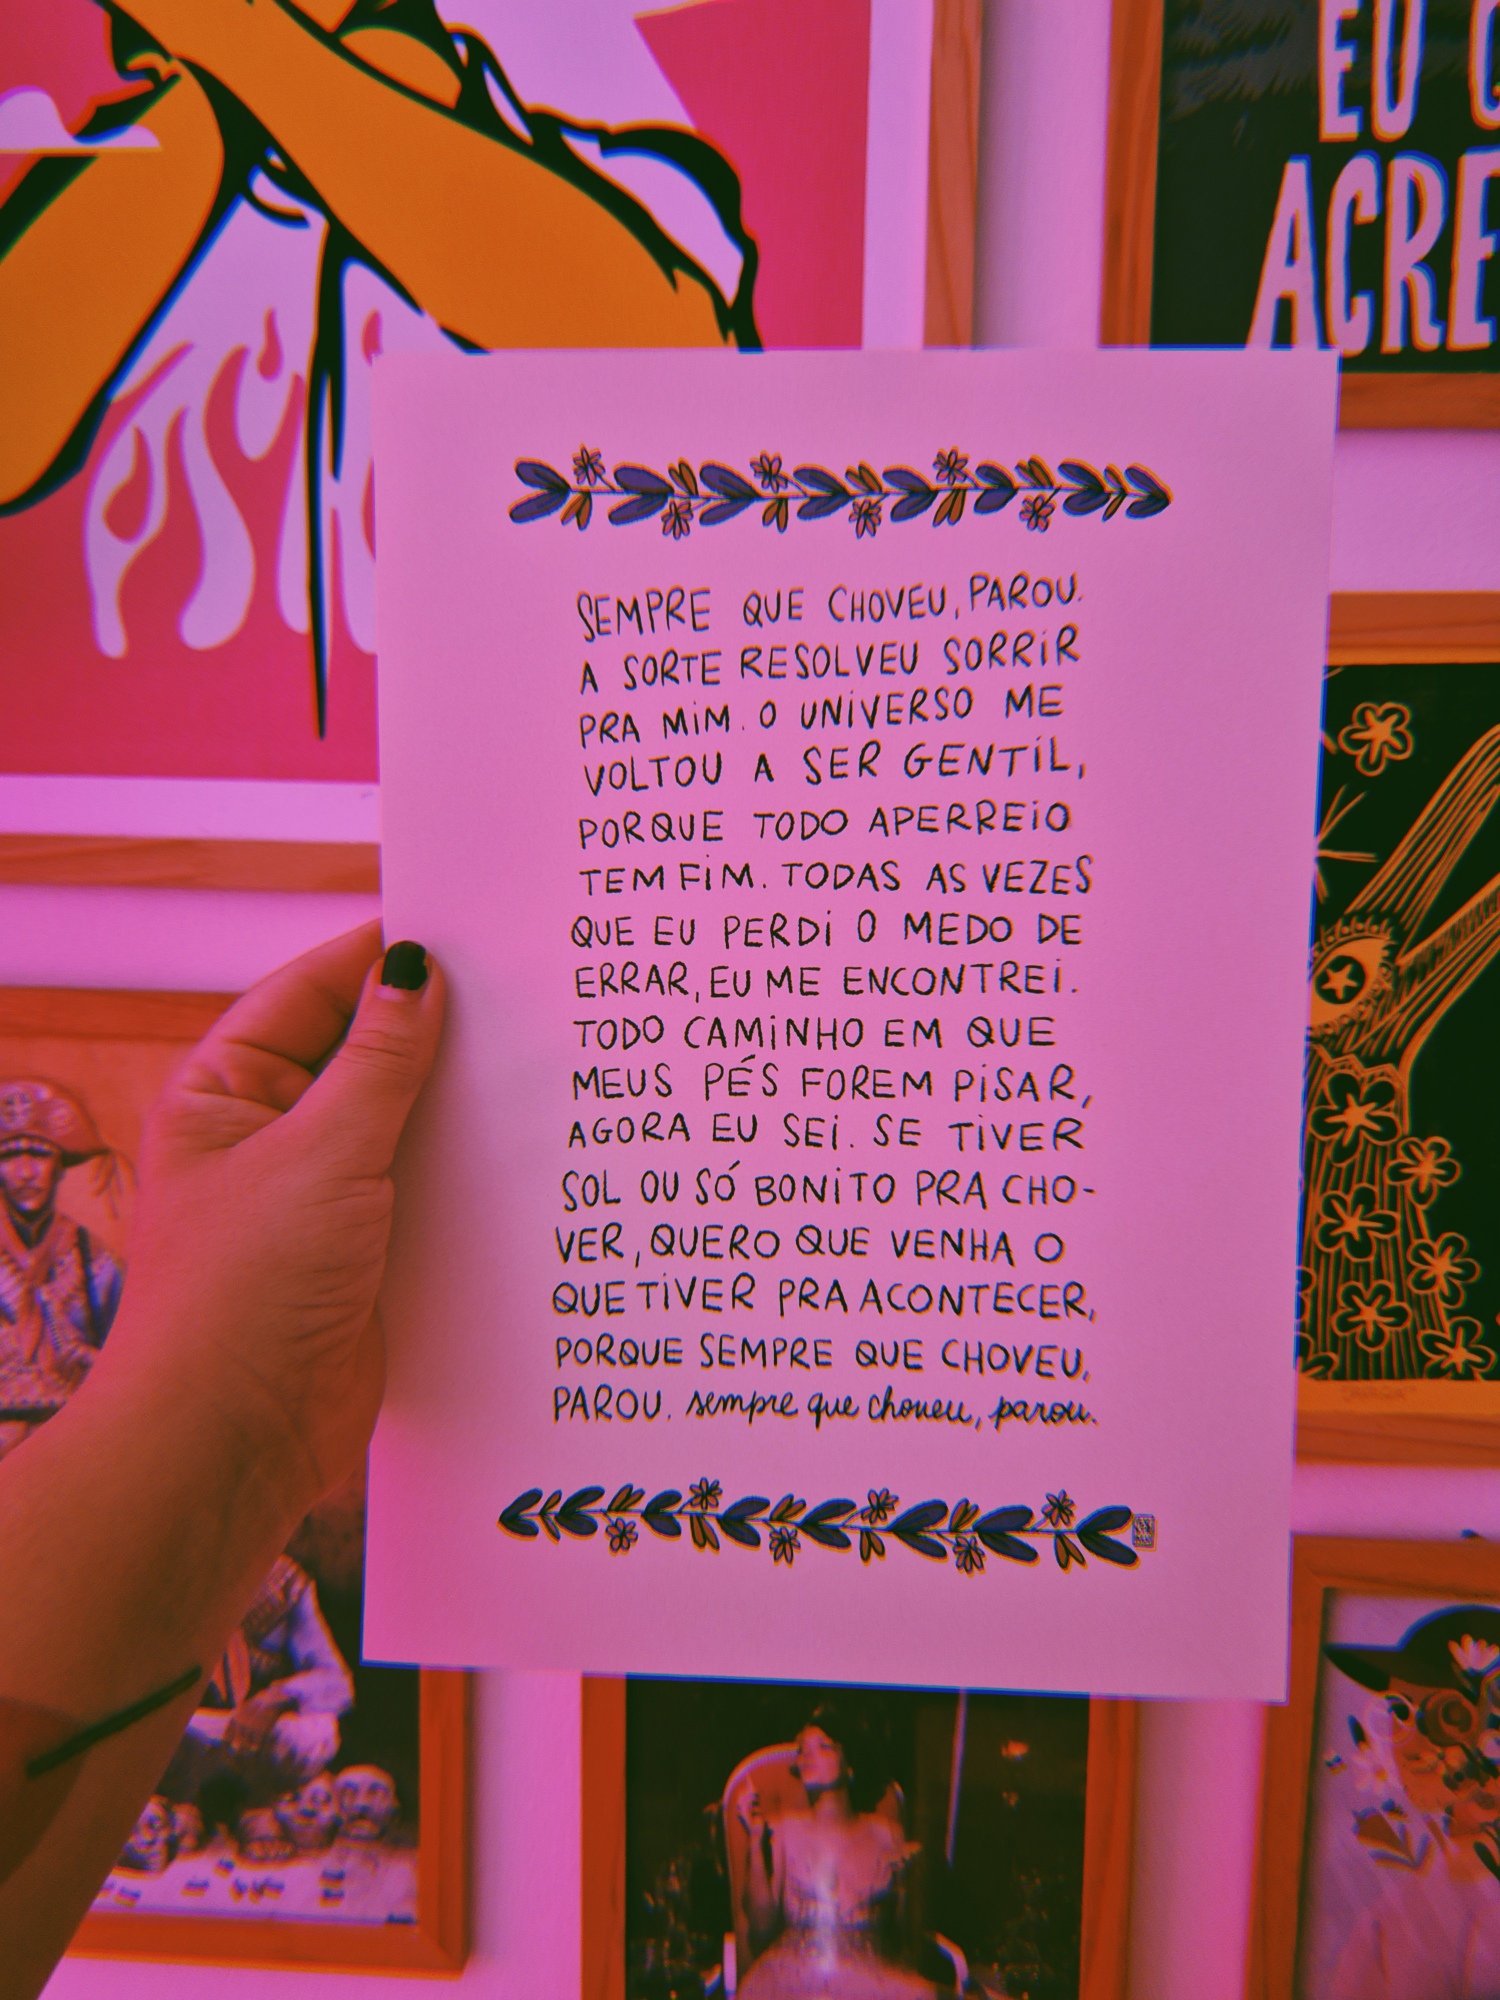 EU
ACRE
PSIC
SEMPRE QUE CHOVEU, PAROU.
A SORTE RESOLVEU SORRIR
PRA MIM. O UNIVERSO ME
VOLTOU A SER GENTIL,
PORQUE TODO APERREIO
TEM FIM. TODAS AS VEZES
QUE EU PERDI O MEDO DE
ERRAR, EU ME ENCONTREI.
TODO CAMINHO EM QUE
MEUS PÉS FOREM PISAR,
AGORA EU SEI. SE TIVER
SOL OU SÓ BONITO PRA CHO-
VER, QUERO QUE VENHA O
QUE TIVER PRA ACONTECER,
PORQUE SEMPRE QUE CHOVEU,
PAROU. sempre que choveu, parou.